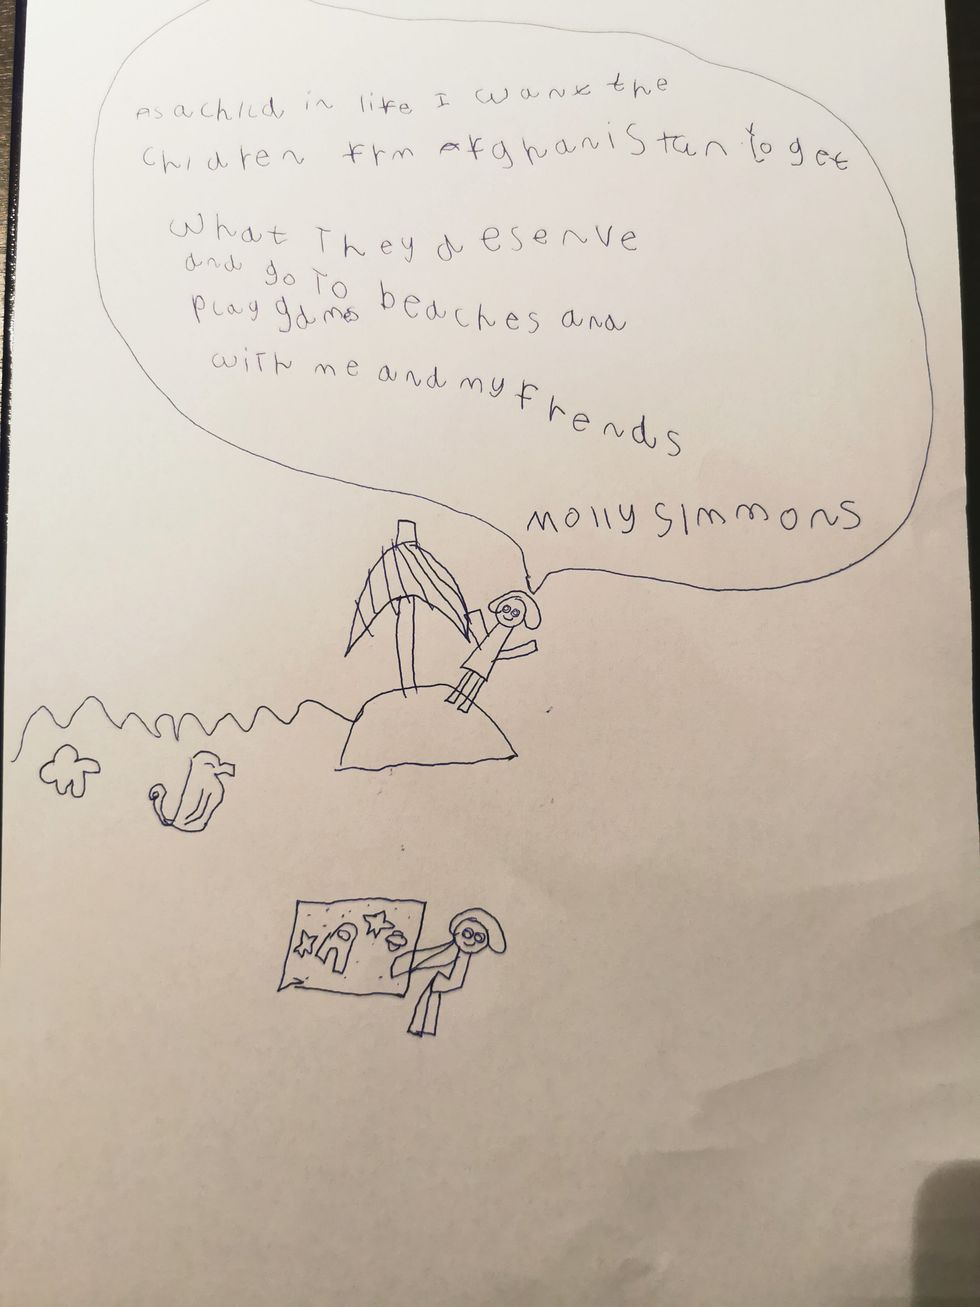 As a child in life I want the
children frm afghanistan to get
what They deserve
and go To beaches and
play games
with me and my frends
molly simmons